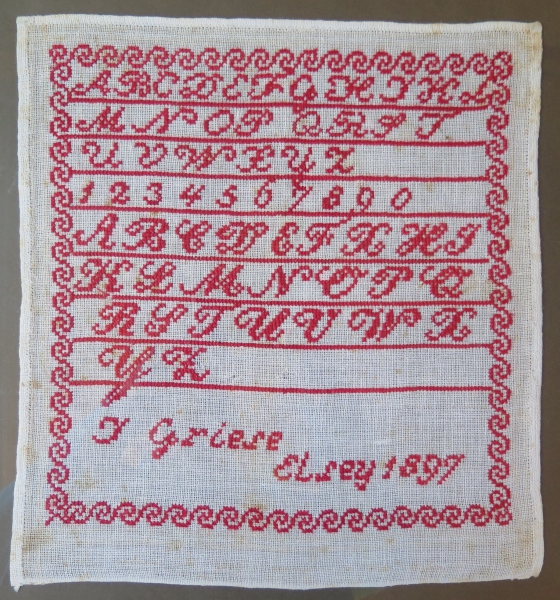 A B C D E F G H I K L
M N O P Q R S T
U V W X Y Z
1 2 3 4 5 6 7 8 9 0
A B C D E F X H I
K L M N O P Q
R S T U V W X
Y Z
J Griese
Elsey 1897